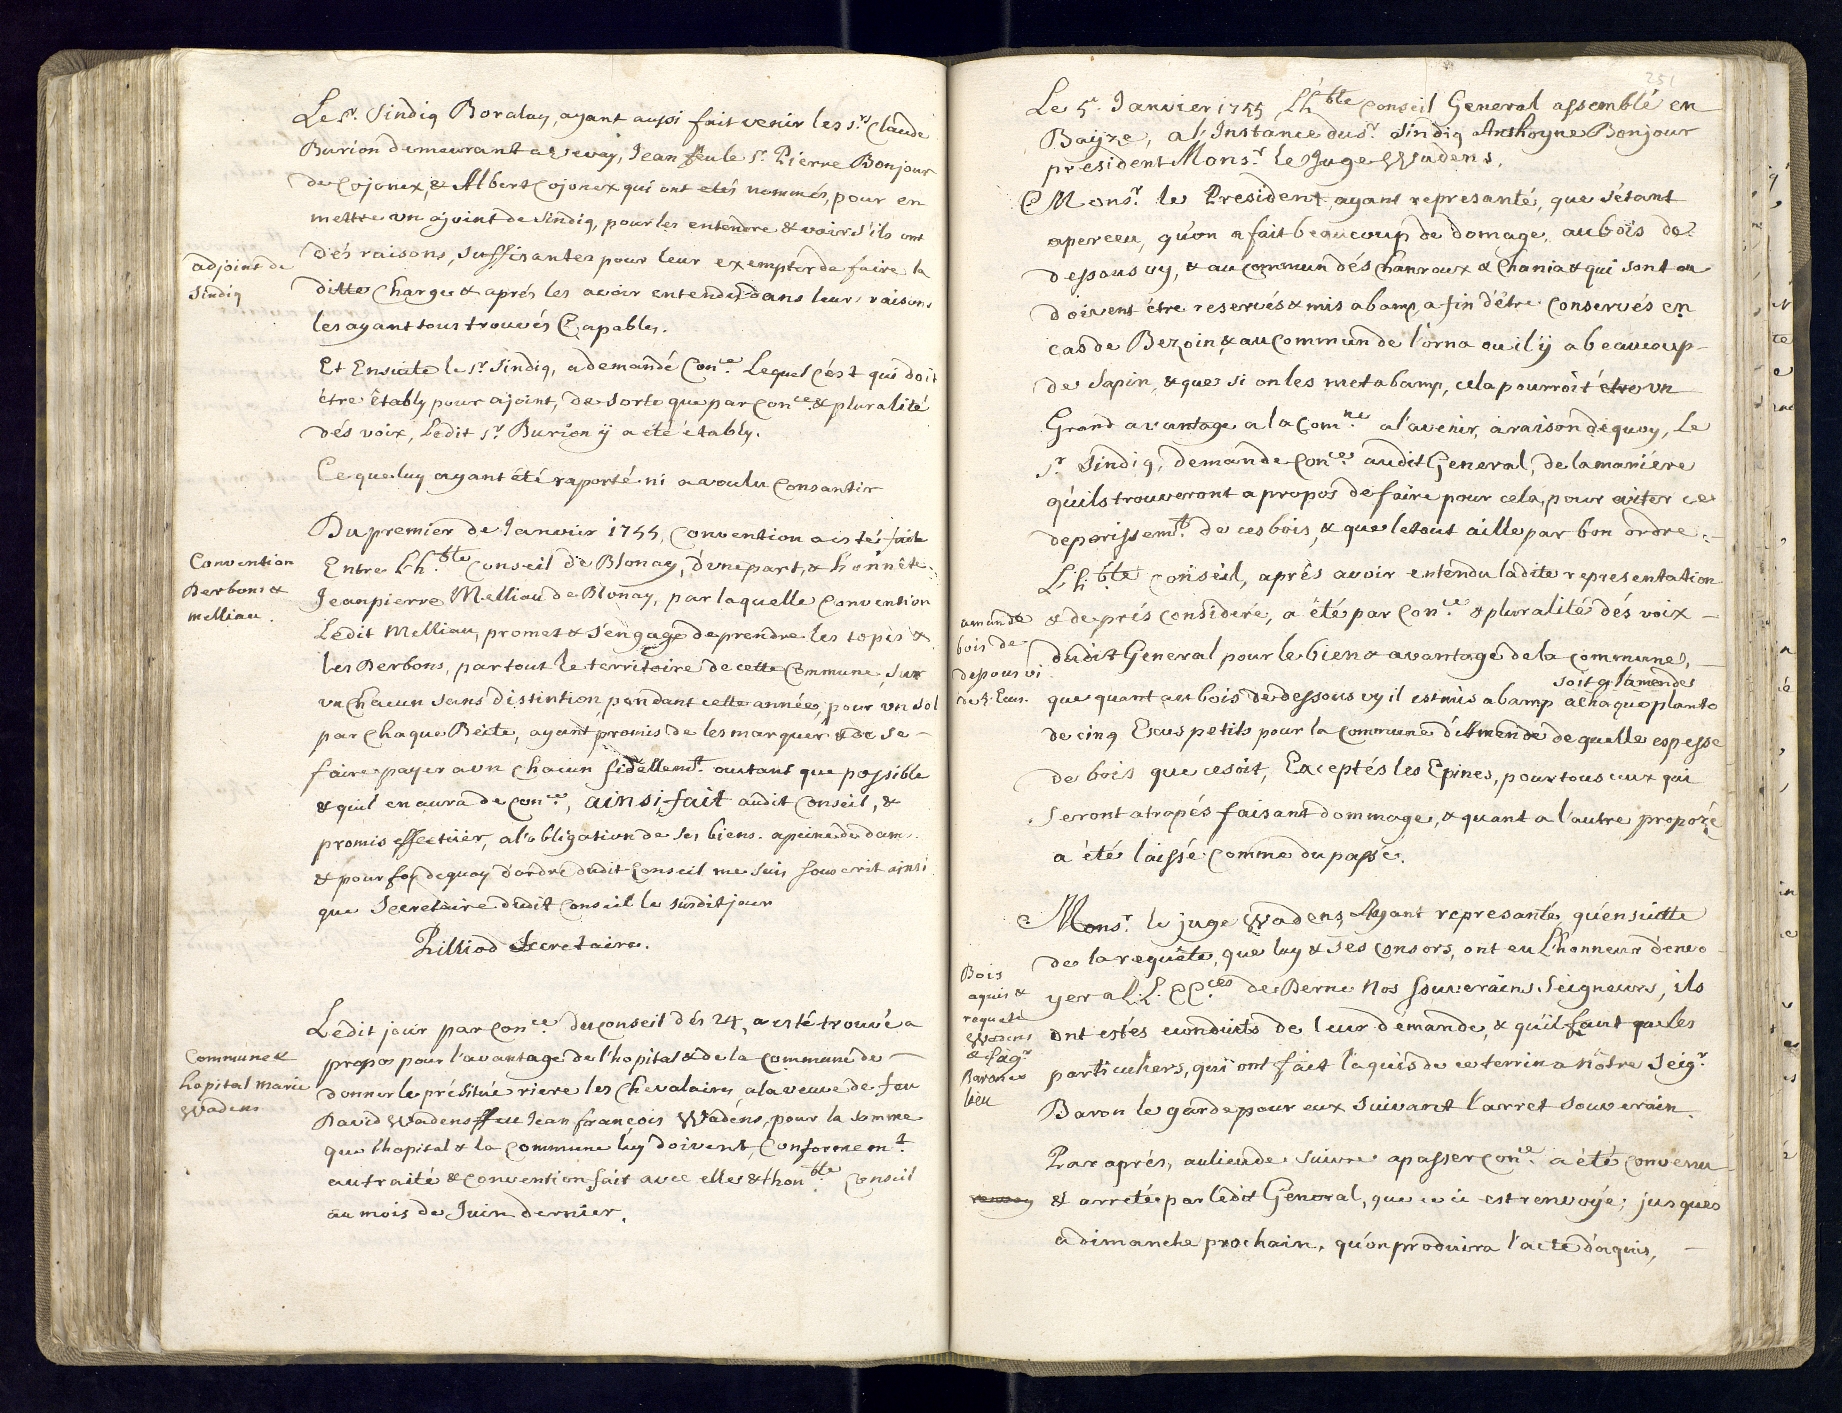 Le Sr. Sindiq Boralay, ayant aussi fait venir les Srs Claude
Burion demeurant a Vevey, Jean feu le Sr. Pierre Bonjour
de Cojonex, & Albert Cojonex qui ont etés nommés, pour en
mettre vn ajoint de Sindiq, pour les entendre & voir s'ils ont
adjoint de
Sindiq
dés raisons, suffisantes pour leur exempter de faire la
ditte Charge & aprés les avoir entendu dans leurs raisons
les ayant tous trouvés Capables.
Et Ensuitte le Sr. Sindiq, a demandé Con.ce Lequel c'ést qui doit
être êtably pour ajoint, de sorte que par Con.ce & pluralité
dés voix, Ledit Sr. Burion ÿ a été êtably.
Ce que luy ayant été raporté ni a voulu Consantir
Du premier de Janvier 1755, Convention a esté faite
Convention
Derbons &
Melliau.
Entre L'h.ble Conseil de Blonay, d'vne part, & l'honnête
Jean pierre Melliau de Blonay, par laquelle Convention
Ledit Melliau, promet & s'engage de prendre les topis &
les Derbons, par tout le territoire de cette Commune, sur
vn Chacun sans distintion, pendant cette année, pour vn sol
par Chaque Beite, ayant promis de les marquer & de se
faire payer a vn chacun fidellem.t autant que possible
& quil en aura de Con.ce, ainsi fait audit Conseil, &
promis effectüer, a l'obligation de ses biens. a peine de dam.
& pour foy de quoy d'ordre dudit Conseil me suis souscrit ainsi
que Secretaire dudit Conseil le susdit jour
Pilliod Secretaire.
Ledit jour par Con.ce du Conseil dés 24, a esté trouvé a
Commune &
hopital Marie
Wadens
propos pour l'avantage de l'hopital & de la Commune de
donner le présitué riere les Chevalaires, a la veuve de feu
David Wadens ffeu Jean françois Wadens, pour la somme
que l'hopital & la Commune luy doivent, Conformem.t
au traité & Convention fait avec elle & lhon.ble Conseil
au mois de Juin dernier.
251
Le 5e. Janvier 1755 L'h.ble Conseil General assemblé en
Bayre, a l'Instance du Sr. Sindiq Anthoyne Bonjour
president Monsr. le Juge Wadens.
Monsr. le President ayant represanté, que s'étant
aperceu, qu'on a fait beaucoup de domage, au bois de
dessous vy, & au Commun dés Chanroux & Chania & qui sont ou
doivent être reservés & mis a bamp a fin d'être conservés en
cas de Bezoin, & au Commun de l'orna ou il ÿ a beaucoup
de Sapin, & que si on les met a bamp, cela pourroit être vn
Grand avantage a la Com.ne a l'avenir, a raison de quoy, Le
Sr Sindiq, demande Con.ce audit General, de la maniére
qu'ils trouveront a propos de faire pour cela, pour eviter ce
deperissem.t de ces bois, & que le tout aille par bon ordre.
L'h.ble Conseil, aprês avoir entendu ladite representation
& de prés consideré, a été par Con.ce & pluralité dés voix
amande
bois de
dessous vi
de 5 Ecus.
dudit General pour le bien & avantage de la Commune,
soit a l'amende
que quant au bois de dessous vy il est mis a bamp a chaque planto
de cinq Escus petits pour la Commune d'Amende de quelle espesse
de bois que ce soit, Exceptés les Epines, pour tous ceux qui
seront atrapés faisant dommage, & quant a l'autre propozé
a été laissé comme du passé.
Monsr. le juge Wadens, Ayant represanté, qu'ensuitte
de la requête, que luy & ses Consors, ont eu L'honneur d'envo
Bois
aquis &
requete
Wadens
& Sigr
Baron de
lieu
yer a L.L. EE.ces de Berne Nos souverains Seigneurs, ils
ont estés econduits de leur demande, & qu'il faut que les
particuliers, qui ont fait l'aquis de ce terrin a Nôtre Seigr.
Baron le garde pour eux suivant l'arret souverain.
Par aprés, au lieu de suivre a passer Con.ce a été convenu
renvoy
& arreté par ledit General, que ceci est renvoyé, jusques
a dimanche prochain, qu'on produira l'acte d'aquis,